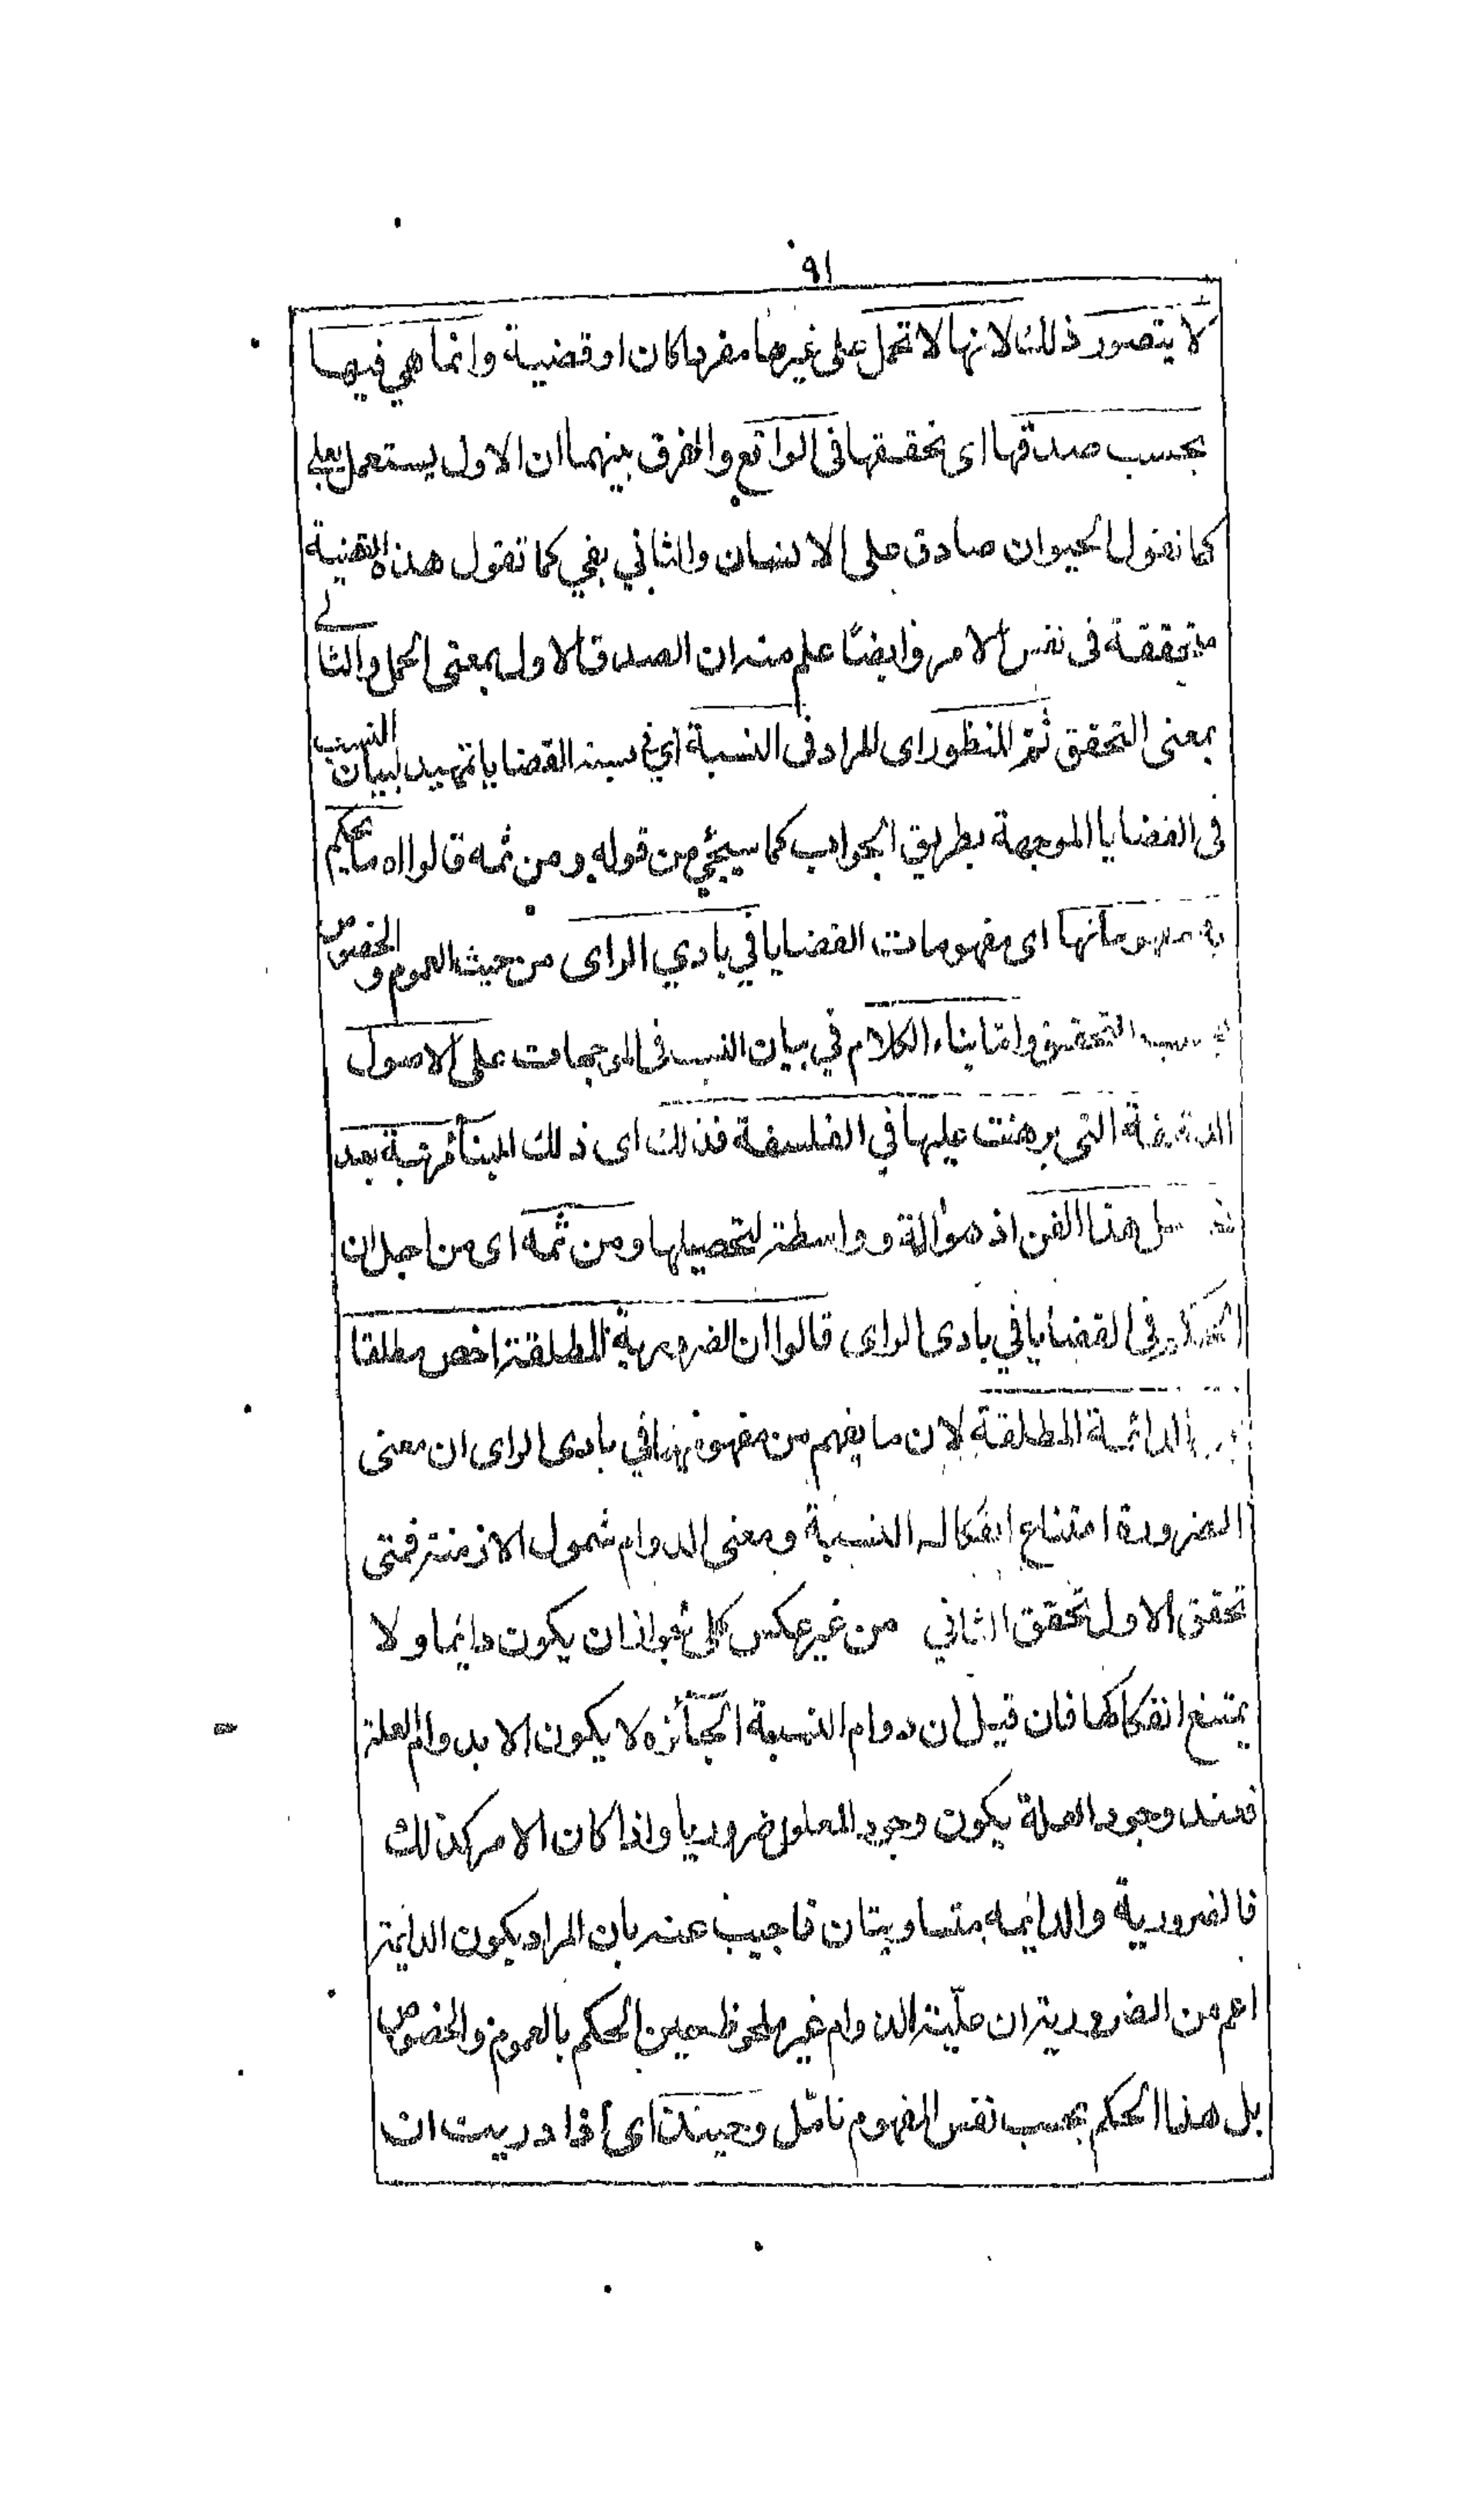 ٩١
لا يتصور ذلك لانها لا تحمل على غيرها مفردا كان او قضية وانما هي فيها
بحسب صدقها اى تحققها فى الواقع والفرق بينهما ان الاول يستعمل بعلى
كما نقول الحيوان صادق على الانسان والثاني بفي كما تقول هذه القضية
متحققة فى نفس الامر وايضًا علم منه ان الصدق الاول بمعنى الحمل والثانے
بمعنى التحقق ثمّ المنظور اى المراد فى النسبة اي فى نسبة القضايا تمهيد لبيان النسب
فى القضايا الموجهة بطريق الجواب كما سيجئ من قوله ومن ثمه قالوا اه ما يحكم
به مفهوماتها اى مفهومات القضايا في بادي الراى من حيث العموم والخصوص
التحقيق واما بناء الكلام في بيان النسب فى الموجهات على الاصول
الدقيقة التى برهنت عليها في الفلسفة فذلك اى ذلك البناء مرتبة بعد
هذا الفن اذ هو آلة وواسطة لتحصيلها ومن ثمه اى من اجل ان
فى القضايا في بادى الراى قالوا ان الضرورية المطلقة اخص مطلقا
من الدائمة المطلقة لان ما يفهم من مفهومهما في بادى الراى ان معنى
الضرورة امتناع انفكاك النسبة ومعنى الدوام شمول الازمنة فمتى
تحقق الاول تحقق الثاني من غير عكس كلى لجواز ان يكون دائما ولا
يمتنع انفكاكها فان قيل ان دوام النسبة الجائزه لا يكون الا بدوام العلة
فعند وجود العلة يكون وجود المعلول ضروريا واذا كان الامر كذلك
فالضرورية والدائمه متساويتان فاجيب عنه بان المراد بكون الدائمة
اعم من الضرورية ان علّية الدوام غير ملحوظ حين الحكم بالعموم والخصوص
بل هذا الحكم بحسب نفس المفهوم تامّل وحينئذ اى اذا دريت ان